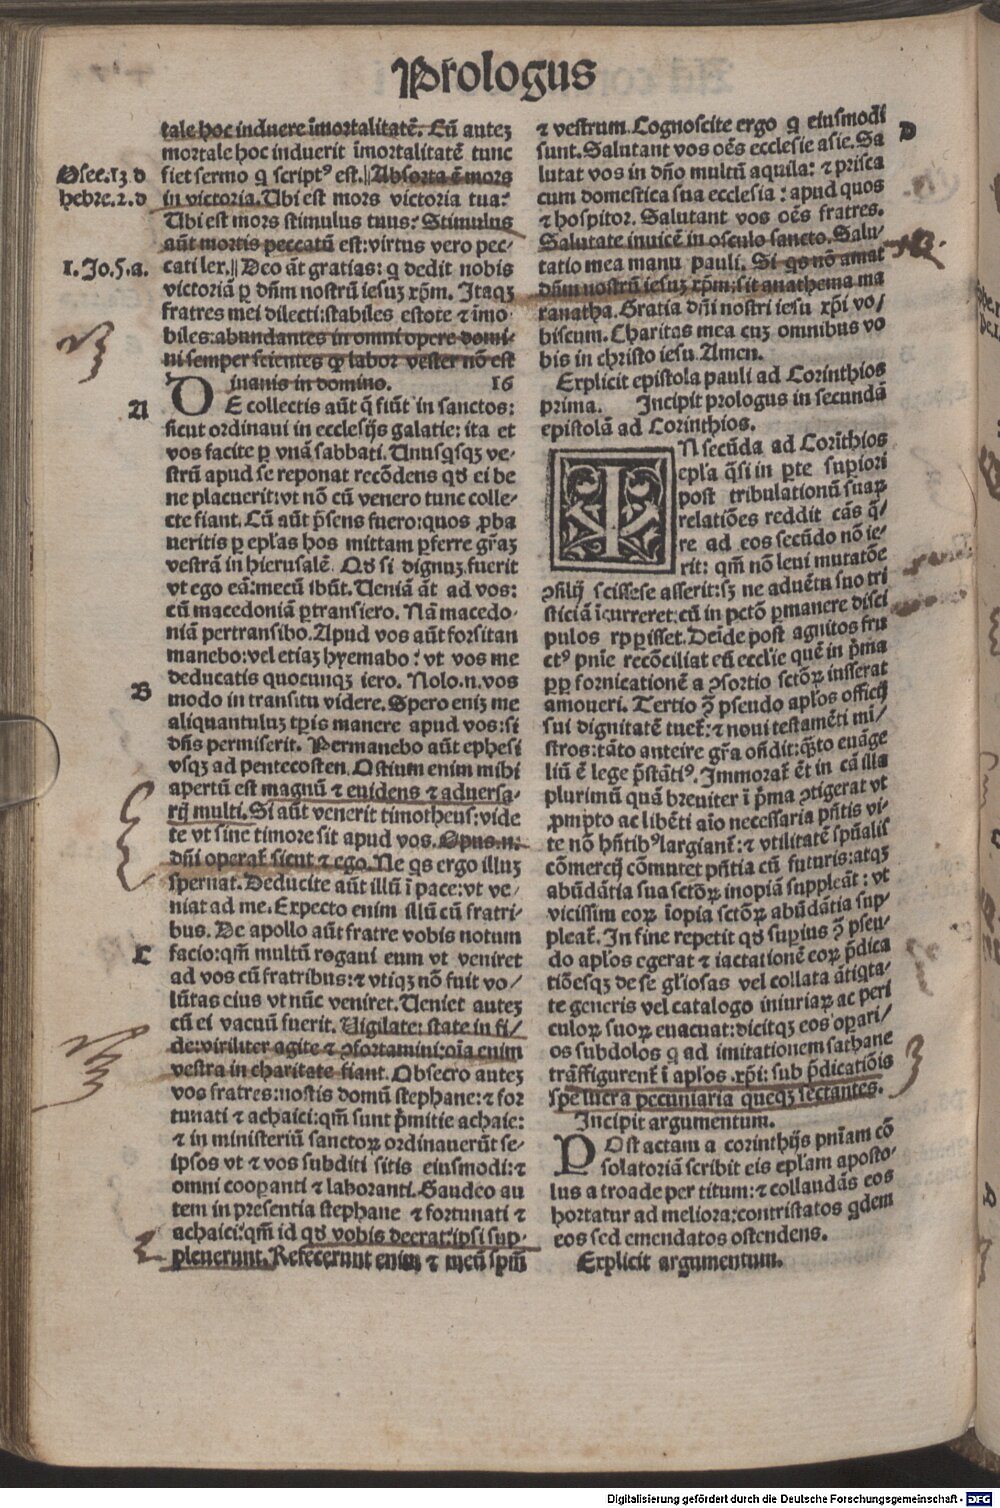 Prologus
tale hoc induere īmortalitatē. Cū auteꝫ
mortale hoc induerit īmortalitatē tunc
Osee.13 d
fiet sermo q̄ scriptꝰ est.||Absorta ē mors
hebre.2.d
in victoria. Ubi est mors victoria tua?
Ubi est mors stimulus tuus? Stimulus
aūt mortis peccatū est: virtus vero pec-
1. Jo.5.a.
cati lex.||Deo āt gratias: q̄ dedit nobis
victoriā ꝑ dn̄m nostrū iesuꝫ xp̄m. Itaqꝫ
fratres mei dilecti: stabiles estote ⁊ īmo-
biles: abundantes in omni opere domi-
ni semper scientes ꝙ labor vester nō est
inanis in domino. 16
A
DE collectis aūt q̄ fiūt in sanctos:
sicut ordinaui in ecclesijs galatie: ita et
vos facite ꝑ vnā sabbati. Unusqͥsqꝫ ve-
strū apud se reponat recōdens qd̄ ei be
ne placuerit: vt nō cū venero tunc colle-
cte fiant. Cū aūt p̄sens fuero: quos ꝓba
ueritis ꝑ epl̄as hos mittam ꝑferre gr̄aꝫ
vestrā in hierusalē. Qd̄ si dignuꝫ fuerit
vt ego eā: mecū ibūt. Ueniā āt ad vos:
cū macedoniā ꝑtransiero. Nā macedo-
niā pertransibo. Apud vos aūt forsitan
manebo: vel etiaꝫ hyemabo: vt vos me
deducatis quocunqꝫ iero. Nolo.n. vos
B
modo in transitu videre. Spero eniꝫ me
aliquantuluꝫ tꝑis manere apud vos: si
dn̄s permiserit. Permanebo aūt ephesi
vsqꝫ ad pentecosten. Ostium enim mihi
apertū est magnū ⁊ euidens ⁊ aduersa-
rij multi. Si aūt venerit timotheus: vide
te vt sine timore sit apud vos. Opus.n.
dn̄i operat᷑ sicut ⁊ ego. Ne qͥs ergo illuꝫ
spernat. Deducite aūt illū ī pace: vt ve/
niat ad me. Expecto enim illū cū fratri-
bus. De apollo aūt fratre vobis notum
C
facio: qm̄ multū rogaui eum vt veniret
ad vos cū fratribus: ⁊ vtiqꝫ nō fuit vo/
lūtas eius vt nūc veniret. Ueniet auteꝫ
cū ei vacuū fuerit. Uigilate: state in fi/
de: viriliter agite ⁊ ꝯfortamini: oīa enim
vestra in charitate fiant. Obsecro auteꝫ
vos fratres: nostis domū stephane: ⁊ for
tunati ⁊ achaici: qm̄ sunt p̄mitie achaie:
⁊ in ministeriū sanctoꝝ ordinauerūt se-
ipsos vt ⁊ vos subditi sitis eiusmodi: ⁊
omni cooꝑanti ⁊ laboranti. Gaudeo au
tem in presentia stephane ⁊ fortunati ⁊
achaici: qm̄ id qd̄ vobis deerat: ipsi sup-
pleuerunt. Refecerunt enim ⁊ meū spm̄
D
⁊ vestrum. Cognoscite ergo q̄ eiusmodi
sunt. Salutant vos oēs ecclesie asie. Sa
lutat vos in dn̄o multū aquila: ⁊ prisca
cum domestica sua ecclesia: apud quos
⁊ hospitor. Salutant vos oēs fratres.
Salutate inuicē in osculo sancto. Salu-
tatio mea manu pauli. Si qͥs nō amat
dn̄m nostrū iesuꝫ xp̄m: sit anathema ma
ranatha. Gratia dn̄i nostri iesu xp̄i vo/
biscum. Charitas mea cuꝫ omnibus vo
bis in christo iesu. Amen.
Explicit epistola pauli ad Corinthios
prima. Incipit prologus in secundā
epistolā ad Corinthios.
IN secūda ad Corīthios
epl̄a qͣsi in ꝑte suꝑiori
post tribulationū suaꝝ
relatiōes reddit cās qͣ/
re ad eos secūdo nō ie/
rit: qm̄ nō leui mutatōe
ꝯsilij scissese asserit: sꝫ ne aduētu suo tri
sticiā īcurreret: cū in pctō ꝑmanere disci
pulos rꝑꝑisset. Deīde post agnitos fru
ctꝰ pn̄ie recōciliat eū eccl̄ie quē in p̄ma
ꝓꝑ fornicationē a ꝯsortio sctōꝝ insserat
amoueri. Tertio ꝯ̄ pseudo apl̄os officij
sui dignitatē tuet᷑: ⁊ noui testamēti mi/
stros: tāto anteire gr̄a oñdit: qͣ̄to euāge
liū ē lege p̄stātiꝰ. Immorat᷑ ēt in cā illa
plurimū quā breuiter ī p̄ma ꝯtigerat vt
ꝓmpto ac libēti aīo necessaria pn̄tis vi-
te nō hn̄tibꝰ largiant᷑: ⁊ vtilitatē spūalis
cōmercij cōmutet pn̄tia cū futuris: atqꝫ
abūdātia sua sctōꝝ inopiā suppleāt: vt
vicissim eoꝝ īopia sctōꝝ abūdātia sup
pleat᷑. In fine repetit qd̄ suꝑius ꝯ̄ pseu-
do apl̄os egerat ⁊ iactationē eoꝝ p̄dica
tiōesqꝫ de se gl̄iosas vel collata ātiqͥta-
te generis vel catalogo iniuriaꝝ ac peri
culoꝝ suoꝝ euacuat: dicitqꝫ eos oꝑari/
os subdolos q̄ ad imitationem sathane
trāffigurent᷑ ī apl̄os xp̄i: sub p̄dicatiōis
spē lucra pecuniaria queqꝫ sectantes.
Incipit argumentum.
POst actam a corinthijs pn̄iam cō
solatoriā scribit eis epl̄am aposto-
lus a troade per titum: ⁊ collaudās eos
hortatur ad meliora: contristatos qͥdem
eos sed emendatos ostendens.
Explicit argumentum.
Digitalisierung gefördert durch die Deutsche Forschungsgemeinschaft - DFG